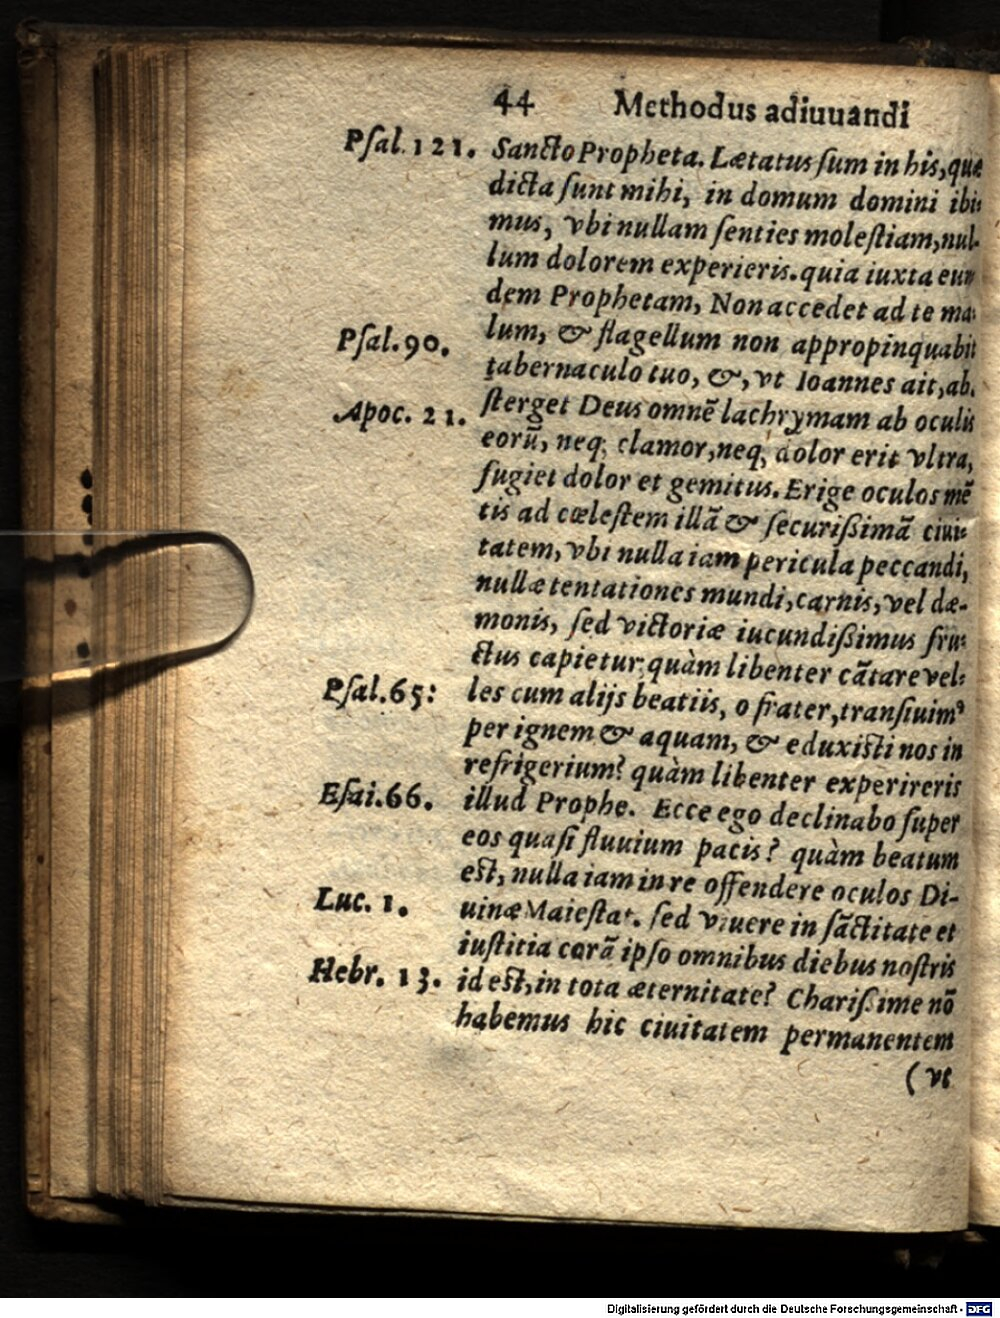 44 Methodus adiuuandi
Psal. 121. Sancto Propheta. Lætatus ſum in his, quæ
dicta ſunt mihi, in domum domini ibi-
mus, vbi nullam ſenties moleſtiam, nul-
lum dolorem experieris. quia iuxta eun
dem Prophetam, Non accedet ad te ma-
Pſal. 90. lum, & flagellum non appropinquabit
tabernaculo tuo, &, vt Ioannes ait, ab-
Apoc. 21. ſterget Deus omnẽ lachrymam ab oculis
eorũ, neq; clamor, neq; dolor erit vltra,
fugiet dolor et gemitus. Erige oculos mẽ
tis ad cœleſtem illã & ſecuriſſimã ciui-
tatem, vbi nulla iam pericula peccandi,
nullæ tentationes mundi, carnis, vel dæ-
monis, ſed victoriæ iucundiſſimus fru-
ctus capietur: quàm libenter cãtare vel-
Pſal. 65: les cum alijs beatiis, o frater, tranſiuimꝰ
per ignem & aquam, & eduxiſti nos in
refrigerium? quàm libenter experireris
Eſai. 66. illud Prophe. Ecce ego declinabo ſuper
eos quaſi fluuium pacis? quàm beatum
eſt, nulla iam in re offendere oculos Di-
Luc. 1. uinæ Maieſtat. ſed viuere in ſãctitate et
iuſtitia corã ipſo omnibus diebus noſtris
Hebr. 13. id eſt, in tota æternitate? Chariſſime nõ
habemus hic ciuitatem permanentem
(vt
Digitalisierung gefördert durch die Deutsche Forschungsgemeinschaft - DFG